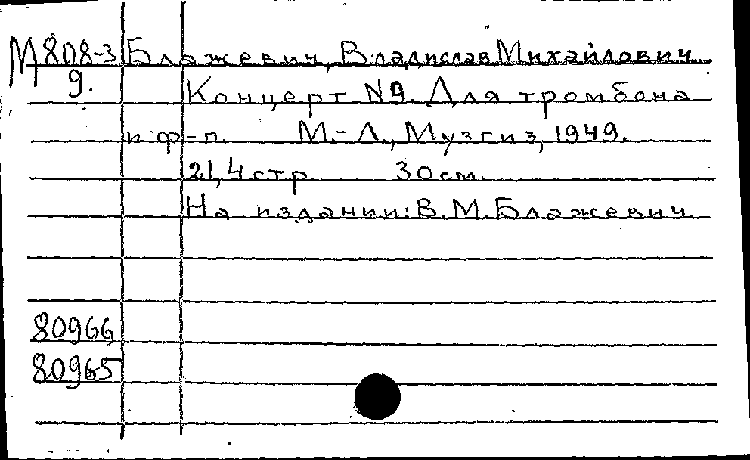 М808-3 Блажевич, Владислав Михайлович
9. Концерт N9. Для тромбона
и ф-п. М.-Л., Музгиз, 1949.
21, 4 стр 30 см.
На издании: В.М. Блажевич
80966
80965